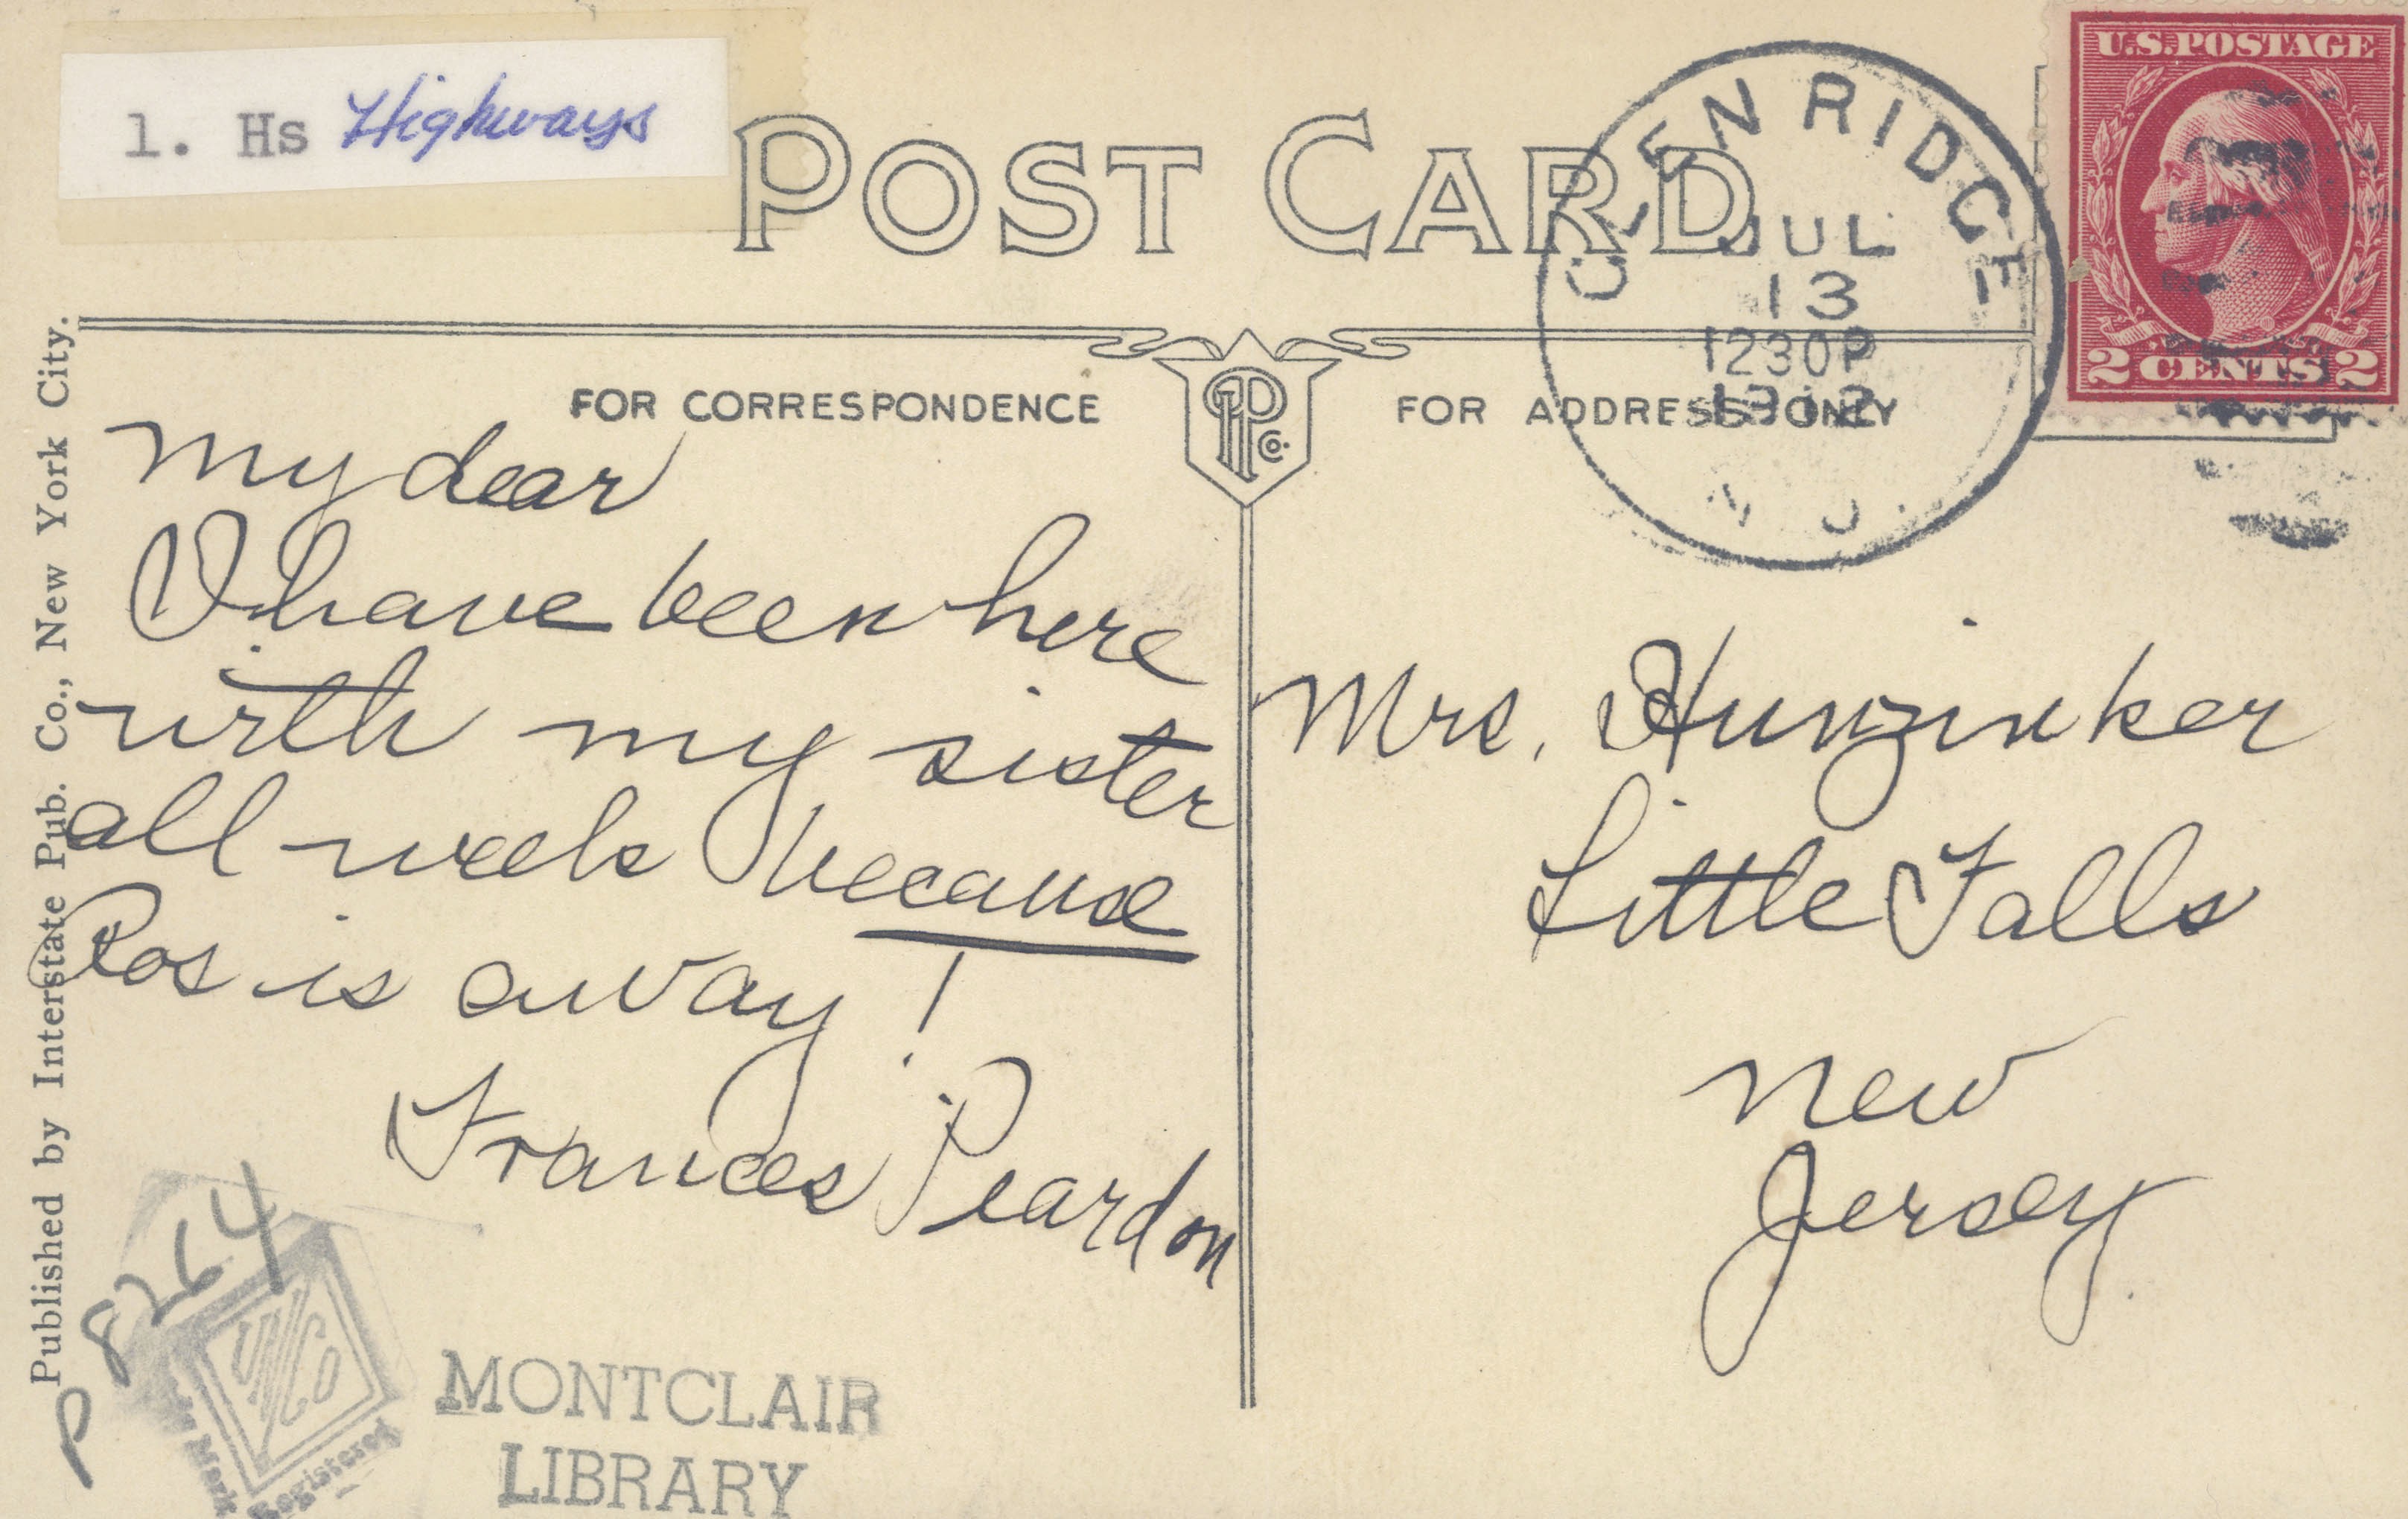 1. Hs Highways
POST CARD
GLEN RIDGE
JUL
13
1230P
N. J.
U.S. POSTAGE
2 CENTS 2
FOR CORRESPONDENCE
FOR ADDRESS ONLY
My dear
I have been here
with my sister
all week because
Ros is away!
Frances Peardon
Mrs. Hunziker
Little Falls
New
Jersey
Published by Interstate Pub. Co., New York City.
P 8264
Registered
MONTCLAIR
LIBRARY